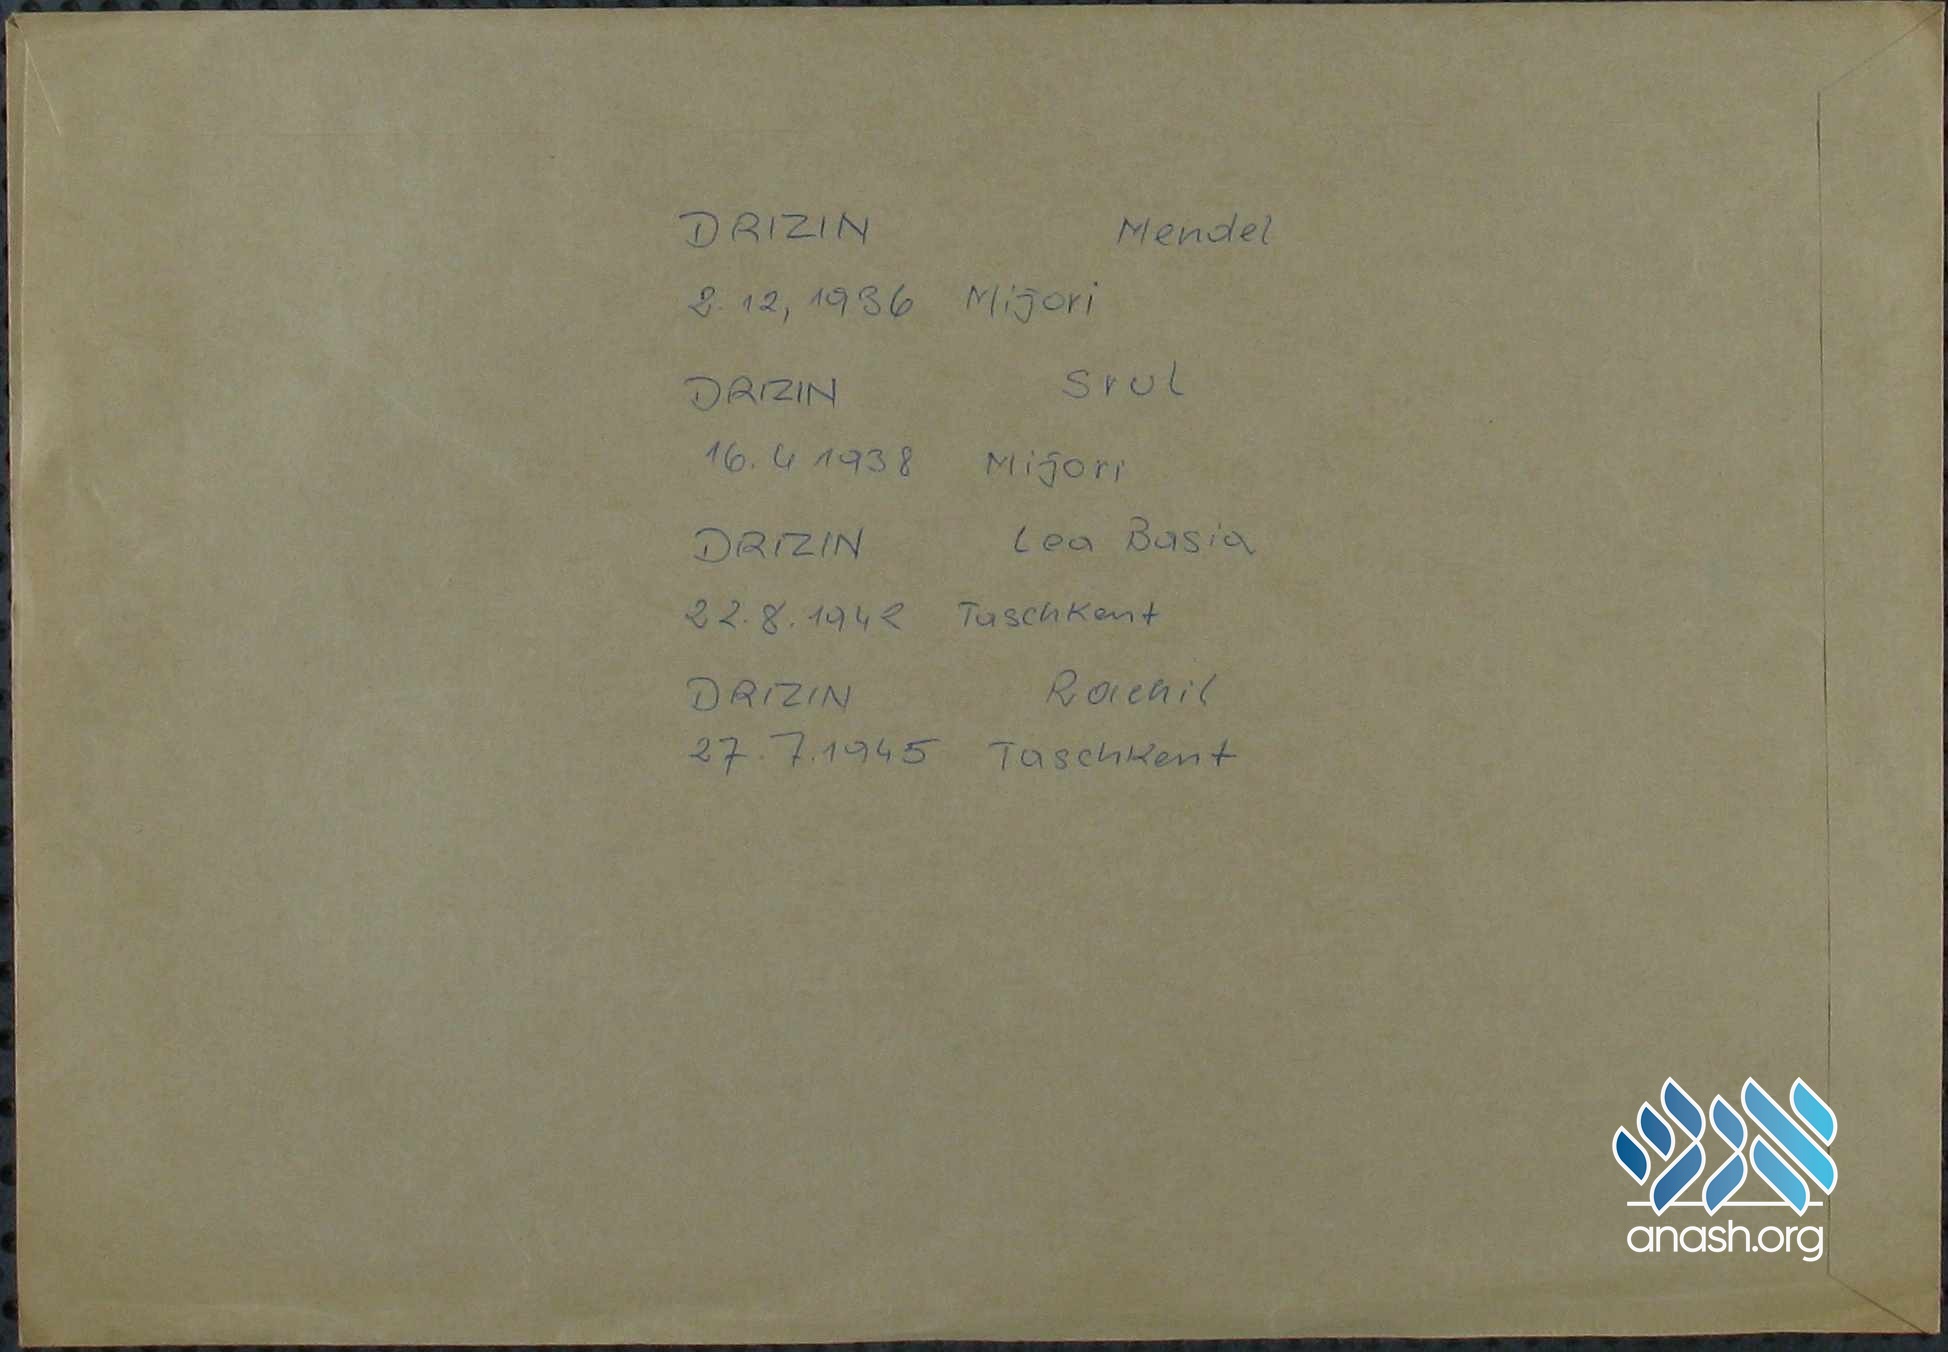 DRIZIN Mendel
2.12, 1936 Mijori
DRIZIN Srul
16.4 1938 Mijori
DRIZIN Lea Basia
22.8.1942 Taschkent
DRIZIN Rachil
27.7.1945 Taschkent
אנש
anash.org